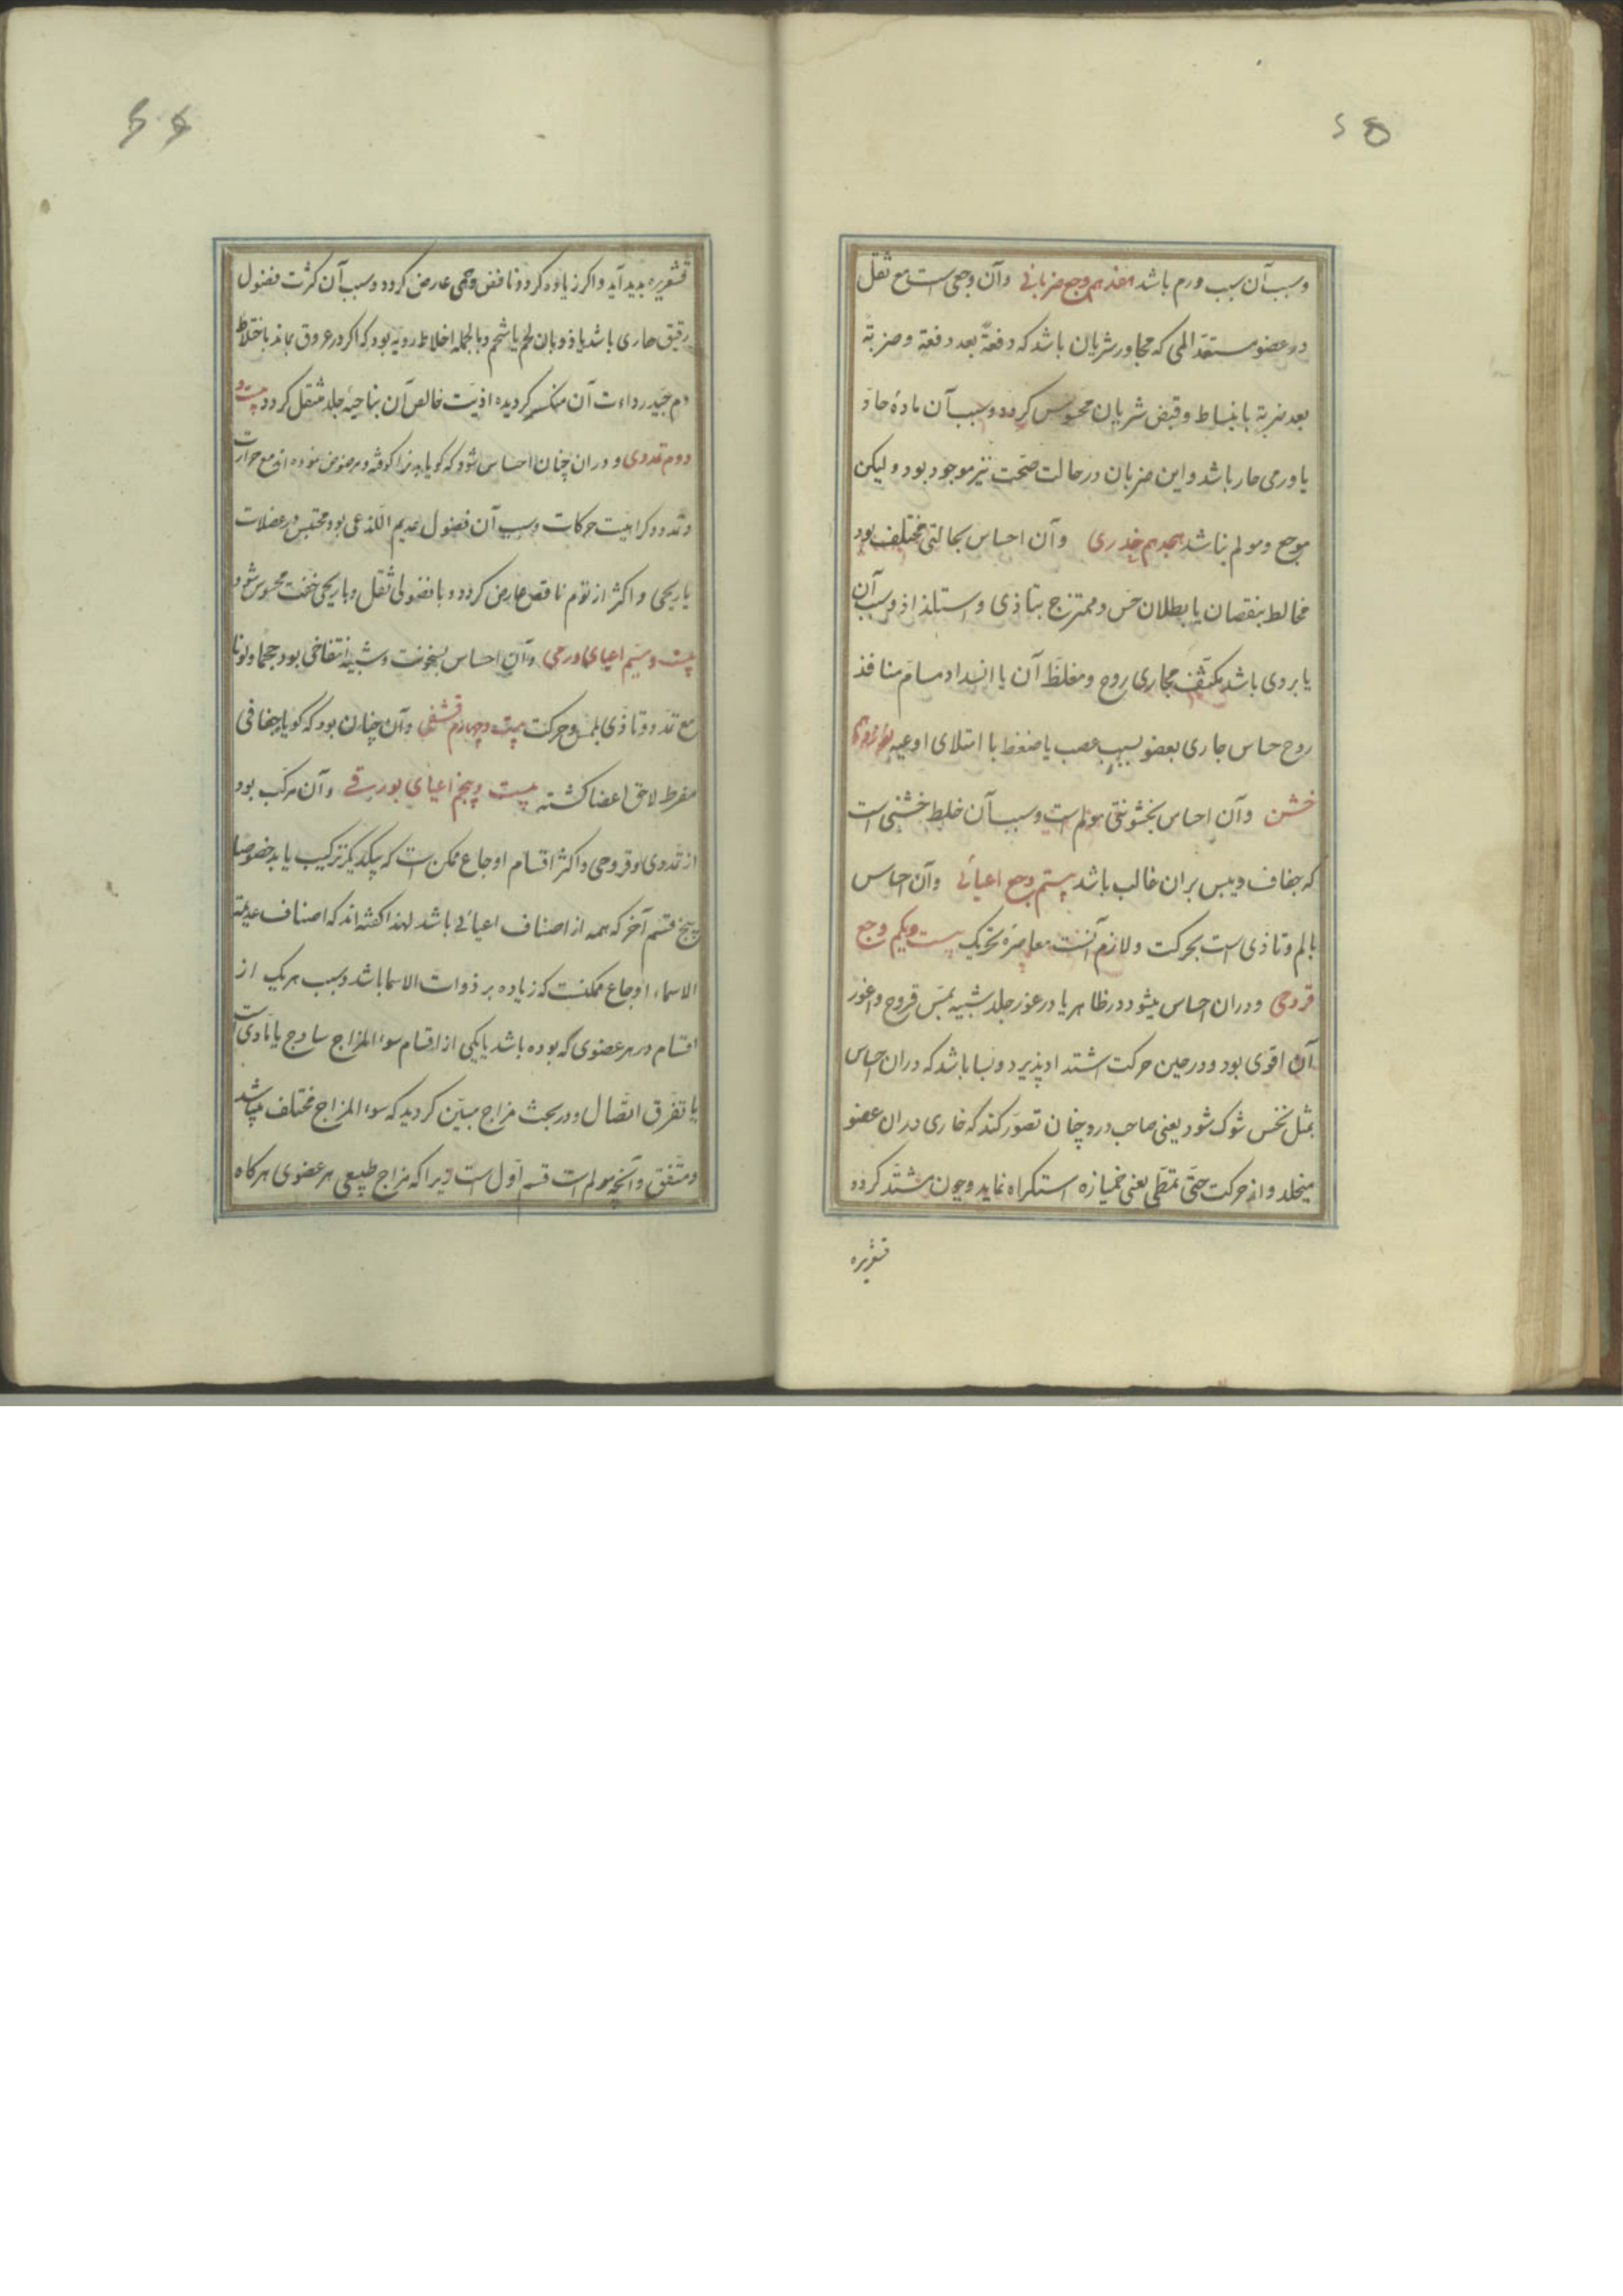 ۲۵
وسبب آن سبب ورم باشد هفدهم وجع ضربانی وآن وجعی است مع ثقل
در عضو مستعد المی که مجاور شریان باشد که دفعة بعد دفعة وضربة
بعد ضربة بانبساط وقبض شریان محسوس کردد وسبب آن مادۀ حاد
یا ورمی حار باشد واین ضربان در حالت صحت نیز موجود بود ولیکن
موجع ومولم نباشد هجدهم خدری وآن احساس بحالتی مختلف بود
مخالط بنقصان یا بطلان حس وممتزج بتاذی واستلذاذ وسبب آن
یا بردی باشد مکثف مجاری روح ومغلظ آن یا انسداد مسام منافذ
روح حساس جاری بعضو بسبب عصب یا ضغط با امتلای اوعیه نوزدهم
خشن وآن احساس بخشونتی مولم است وسبب آن خلط خشنی است
که جفاف ویبس بران غالب باشد بیستم وجع اعیائی وآن احساس
بالم وتاذی است بحرکت ولازم آنست معاصرۀ تحریک بیست ویکم وجع
قروحی ودران احساس میشود در ظاهر یا در غور جلد شبیه بمس قروح واغور
آن اقوی بود ودر حین حرکت اشتداد پذیرد وبسا باشد که دران احساس
بمثل نخس شوک شود یعنی صاحب درد چنان تصور کند که خاری دران عضو
میخلد واز حرکت حتی تمطی یعنی خمیازه استکراه نماید وچون مشتد کردد
قشعریره
۲۶
قشعریره پدید آید واکر زیاده کردد نافض وحمی عارض کردد وسبب آن کثرت فضول
رقیق حاری باشد یا ذوبان لحم یا شحم وبالجمله اخلاط ردیه بود که اکر در عروق بماند باختلاط
دم جید رداءت آن منکسر کردیده اذیت خالص آن بناحیۀ جلد منتقل کردد بیست و
دوم تمددی ودران چنان احساس شود که کویا بدنرا کوفته ومرضوض نموده اند مع حرارت
وتمدد وکراهیت حرکات وسبب آن فضول عدیم اللذعی بود محتبس در عضلات
یا ریحی واکثر از نوم ناقص عارض کردد وبا فضولی ثقل وبا ریحی خفت محسوس شود
بیست وسیم اعیای ورمی وآن احساس بسخونت وشبیه انتفاخی بود حجما ولونا
مع تمدد وتاذی بلمس وحرکت بیست وچهارم قشفی وآن چنان بود که کویا جفافی
مفرط لاحق اعضا کشته بیست وپنجم اعیای بورقی وآن مرکب بود
از تمددی وقروحی واکثر اقسام اوجاع ممکن است که بیکدیکر ترکیب یابد خصوصا
پنج قسم آخر که همه از اصناف اعیائی باشد لهذا کفته اند که اصناف عدیمة
الاسماء اوجاع ممکنست که زیاده بر ذوات الاسما باشد وسبب هریک از
اقسام در هر عضوی که بوده باشد یا یکی از اقسام سوء المزاج ساذج یا مادی است
یا تفرق اتصال ودر بحث مزاج مبین کردید که سوء المزاج مختلف میباشد
ومتفق وآنچه مولم است قسم اول است زیرا که مزاج طبیعی هر عضوی هرکاه